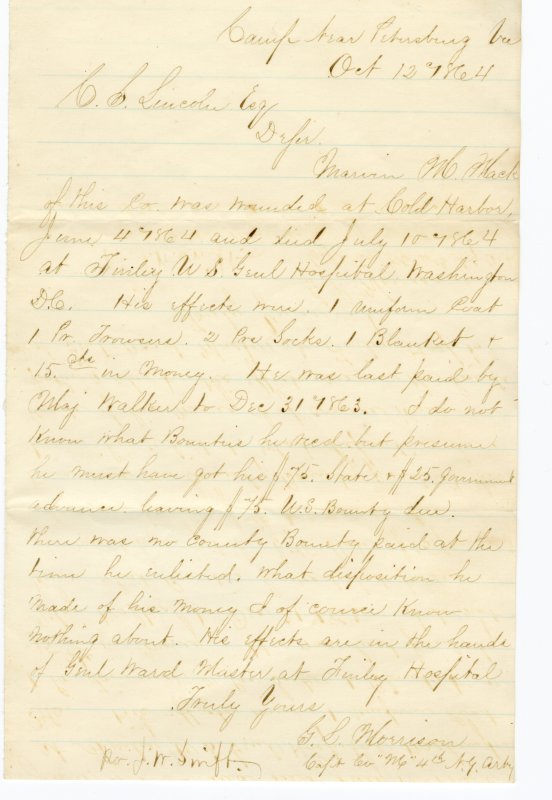 Camp Near Petersburg Va
Oct 12" 1864
C. C. Lincoln Esq
D Sir.
Marvin M. Mack
of this Co. was wounded at Cold Harbor,
June 4" 1864 and died July 10" 1864
at Finley U S. Genl Hospital Washington
D.C. His effects were. 1 Uniform Coat
1 Pr. Trowsers. 2 Prs Socks. 1 Blanket &
15. cts in Money. He was last paid by
Maj Walker to Dec 31" 1863. I do not
Know what Bounties he recd. but presume
he must have got his $75. State & $25. Government
advance leaving $75. U.S. Bounty due.
there was no County Bounty paid at the
time he enlisted. what disposition he
made of his money I of cource Know
nothing about. His effects are in the hands
of Genl Ward Master at Finley Hospital
Truly Yours
G. L. Morrison
Capt Co "M" 4th N.Y. Arty
Per. J. W. Swift.